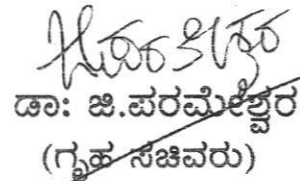 ಡಾ: ಜಿ.ಪರಮೇಶ್ವರ
(ಗೃಹ ಸಚಿವರು)